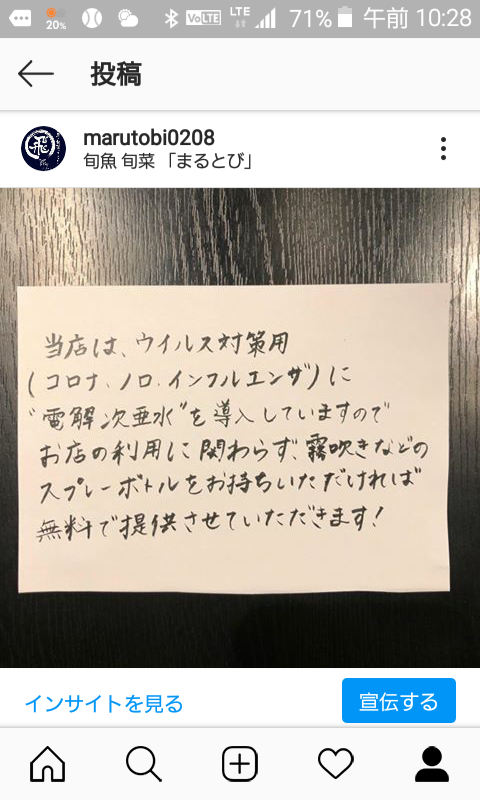 20%
VoLTE
LTE
71%
午前 10:28
投稿
marutobi0208
旬魚 旬菜 「まるとび」
当店は、ウイルス対策用
(コロナ、ノロ、インフルエンザ)に
"電解次亜水"を導入していますので
お店の利用に関わらず、霧吹きなどの
スプレーボトルをお持ちいただければ
無料で提供させていただきます!
インサイトを見る
宣伝する